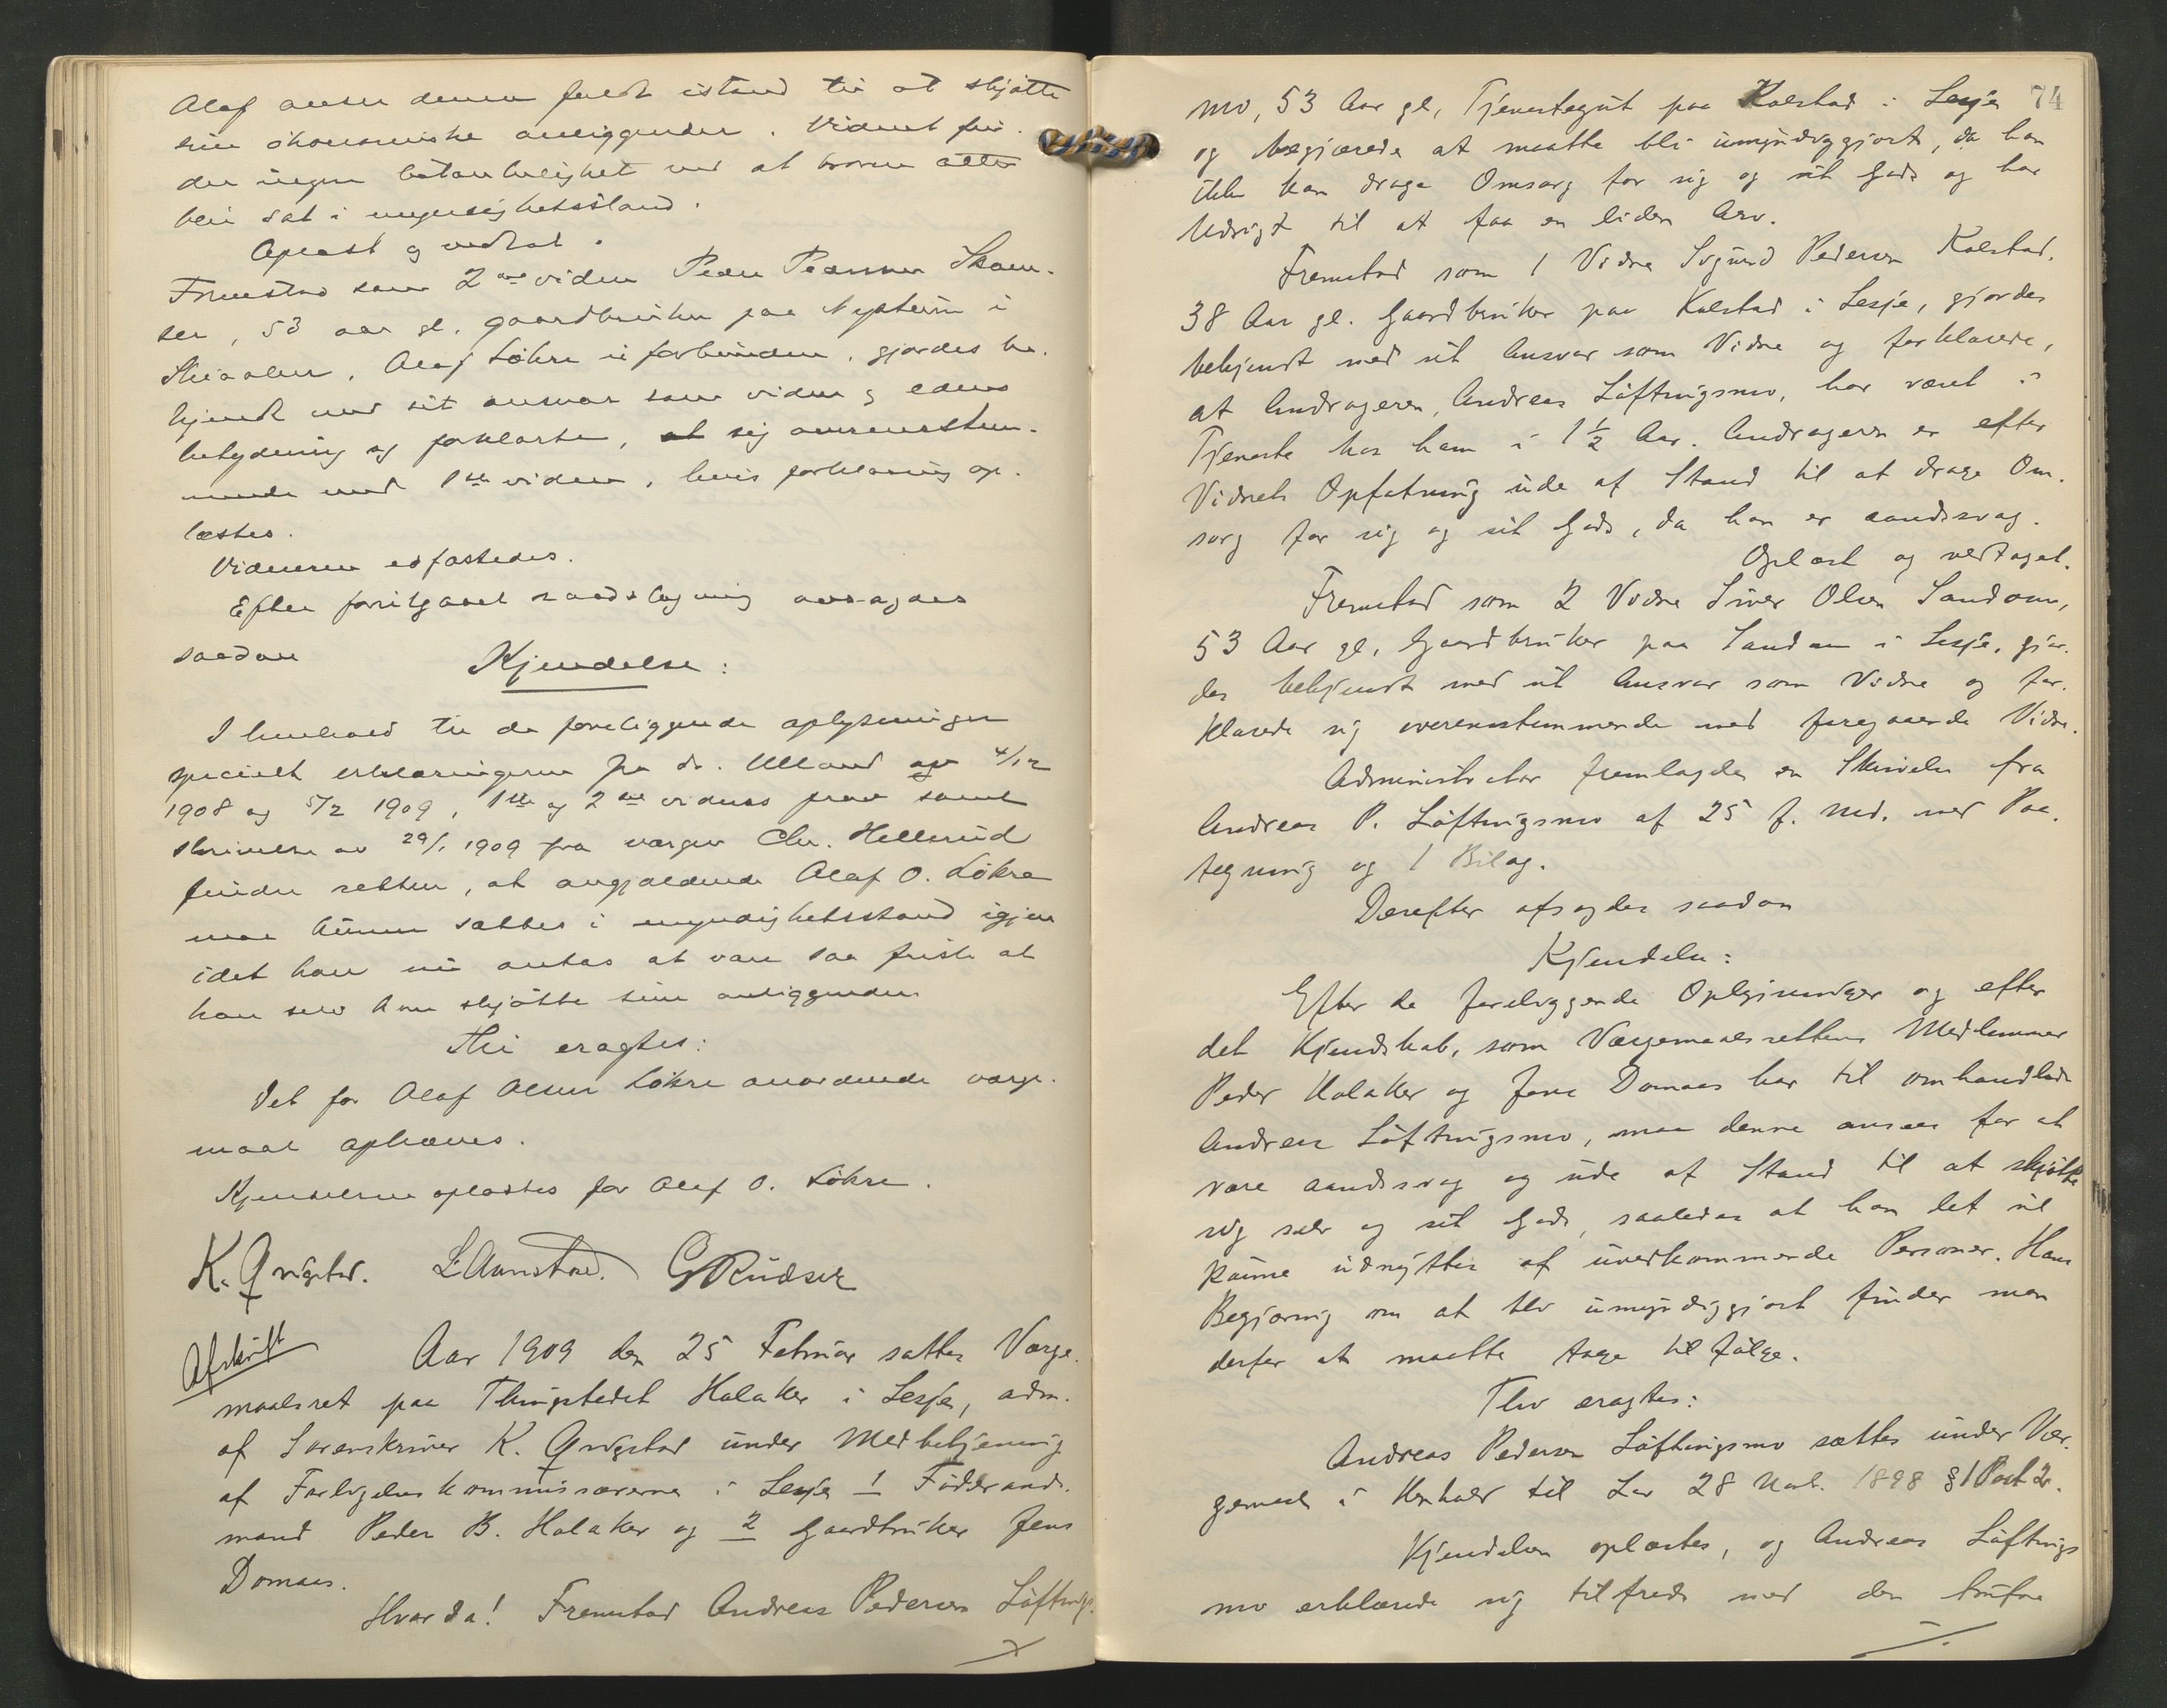 Olaf anser denne fuldt istand til at skjøtte
sine økonomiske anliggender. Vidnet fin-
der ingen betænkelighet ved at han atter
blir sat i myndighetsstand.
Oplæst og vedtat.
Fremstod som 2det vidne Peder Pedersen Skam-
ser, 53 aar gl. gaardbruker paa Nystuen i
Skiaaker, Olaf Løkre uforbunden, gjordes be-
kjendt med sit ansvar som vidne og edens
betydning og forklarte, at sig overensstem-
mende med 1ste vidne, hvis forklaring op-
læstes.
Vidnerne edfæstedes.
Efter foretgaaet raadslagning avsagdes
saadan
Kjendelse:
I henhold til de foreliggende oplysninger
specielt erklæringerne fra dr. Ulland av 4/12
1908 og 5/2 1909, 1ste og 2det vidnes prov samt
skrivelse av 29/1 1909 fra værgen Chr. Hellerud
finder retten, at angjældende Olaf O. Løkre
maa kunne sættes i myndighetsstand igjen
idet han nu antas at være saa frisk at
han selv kan skjøtte sine anliggender
Thi eragtes:
Det for Olaf Olsen Løkre anordnede værge-
maal ophæves.
Kjendelsen oplæstes for Olaf O. Løkre.
K. Qvigstad. L. Aanstad. G Rudser
Afskrift
Aar 1909 den 25 Februar sattes Værge-
maalsret paa Thingstedet Holaker i Lesje, adm.
af Sorenskriver K. Qvigstad under Medbetjening
af Forligelseskommissærerne i Lesje 1 Føderaads-
mand Peder B. Holaker og 2 Gaardbruker Jens
Domaas.
Hvorda! Fremstod Andreas Pedersen Løftings-
74
mo, 53 Aar gl, Tjenestegut paa Kolstad i Lesje
og begjærede at maatte bli umyndiggjort, da han
ikke kan drage Omsorg for sig og sit Gods og har
Udsigt til at faa en liden Arv.
Fremstod som 1 Vidne Sigurd Pedersen Kolstad,
38 Aar gl. Gaardbruker paa Kolstad i Lesje, gjordes
bekjendt med sit Ansvar som Vidne og forklarede,
at Andrageren, Andreas Løftingsmo, har været i
Tjeneste hos ham i 1 1/2 Aar. Andrageren er efter
Vidnets Opfatning ude af Stand til at drage Om-
sorg for sig og sit Gods, da han er aandssvag.
Oplæst og vedtaget.
Fremstod som 2 Vidne Siver Olsen Sandom,
53 Aar gl, Gaardbruker paa Sandom i Lesje, gjor-
des bekjendt med sit Ansvar som Vidne og for-
klarede sig overensstemmende med foregaaende Vidne.
Administrator fremlagde en Skrivelse fra
Andreas P. Løftingsmo af 25 f. Md. med Paa-
tegning og 1 Bilag.
Derefter afsagdes saadan
Kjendelse:
Efter de foreliggende Oplysninger og efter
det Kjendskab, som Værgemaalsrettens Medlemmer
Peder Holaker og Jens Domaas har til omhandlede
Andreas Løftingsmo, maa denne ansees for at
være aandssvag og ude af Stand til at skjøtte
sig selv og sit Gods, saaledes at han let vil
kunne udnyttes af uvedkommende Personer. Hans
Begjæring om at bli umyndiggjort finder man
derfor at maatte tage tilfølge.
Thi eragtes:
Andreas Pedersen Løftingsmo sættes under Vær-
gemaal i Henhold til Lov 28 Novb. 1898 § 1 Post 2.
Kjendelsen oplæstes, og Andreas Løftings
mo erklærede sig tilfreds med den trufne